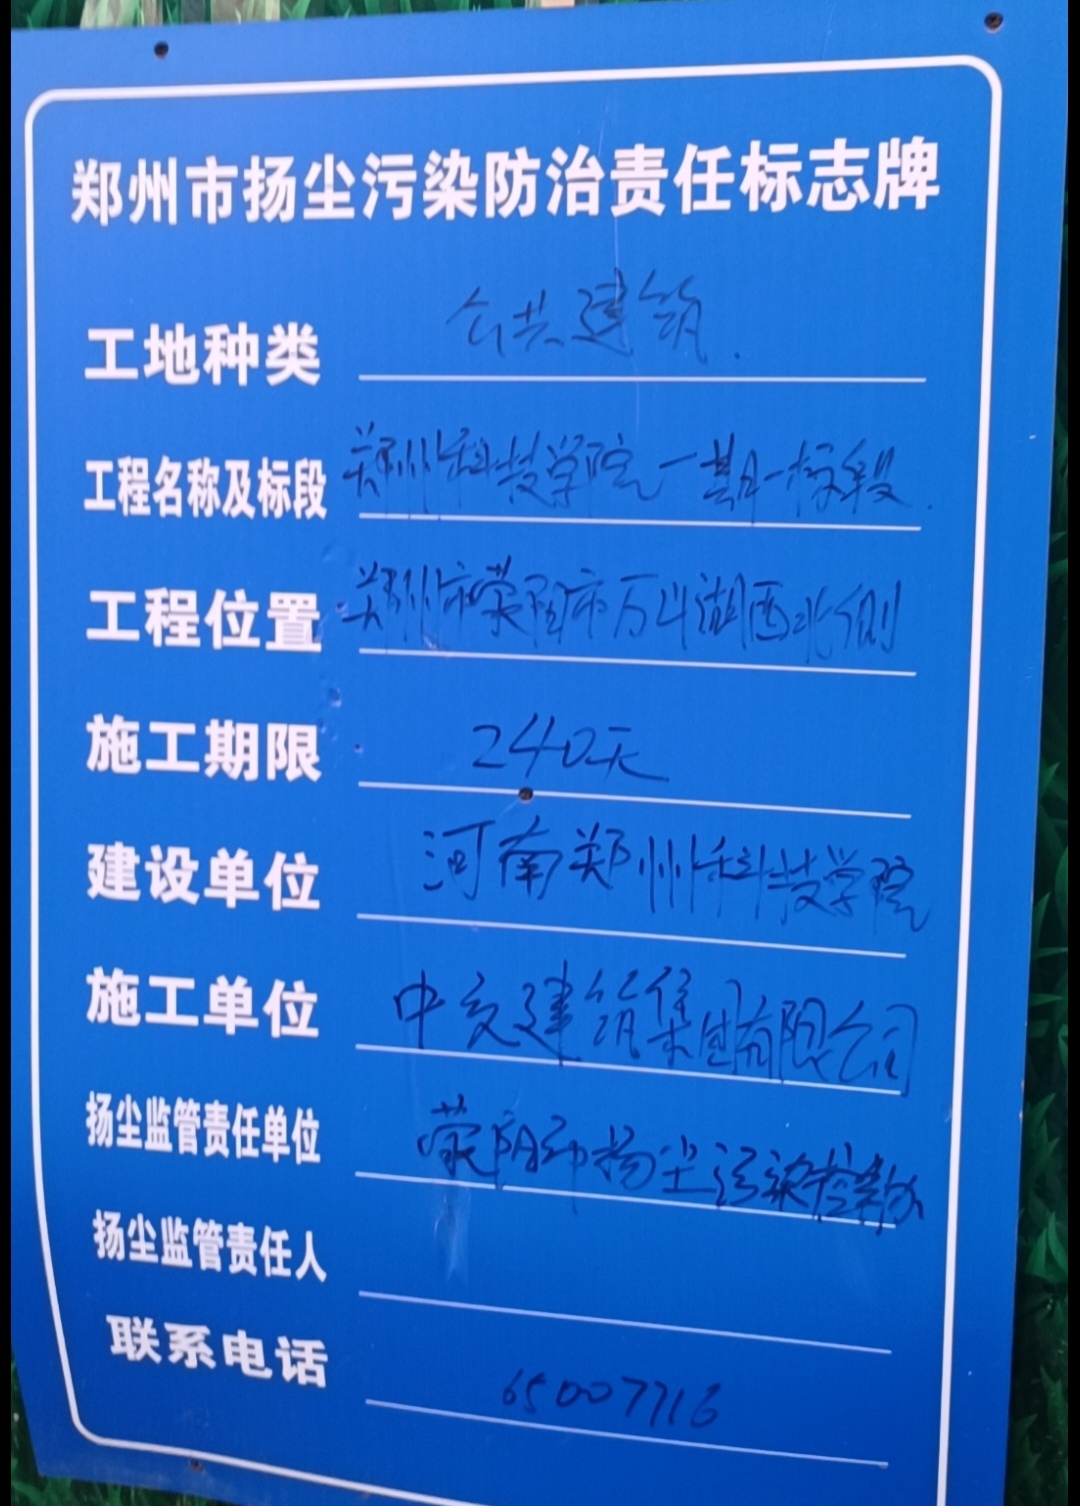 郑州市扬尘污染防治责任标志牌
工地种类 公共建筑.
工程名称及标段 郑州科技学院一期一标段.
工程位置 郑州市荥阳市万山湖西北侧
施工期限 240天
建设单位 河南郑州科技学院
施工单位 中交建筑集团有限公司
扬尘监管责任单位 荥阳市扬尘污染控
扬尘监管责任人
联系电话 65007716